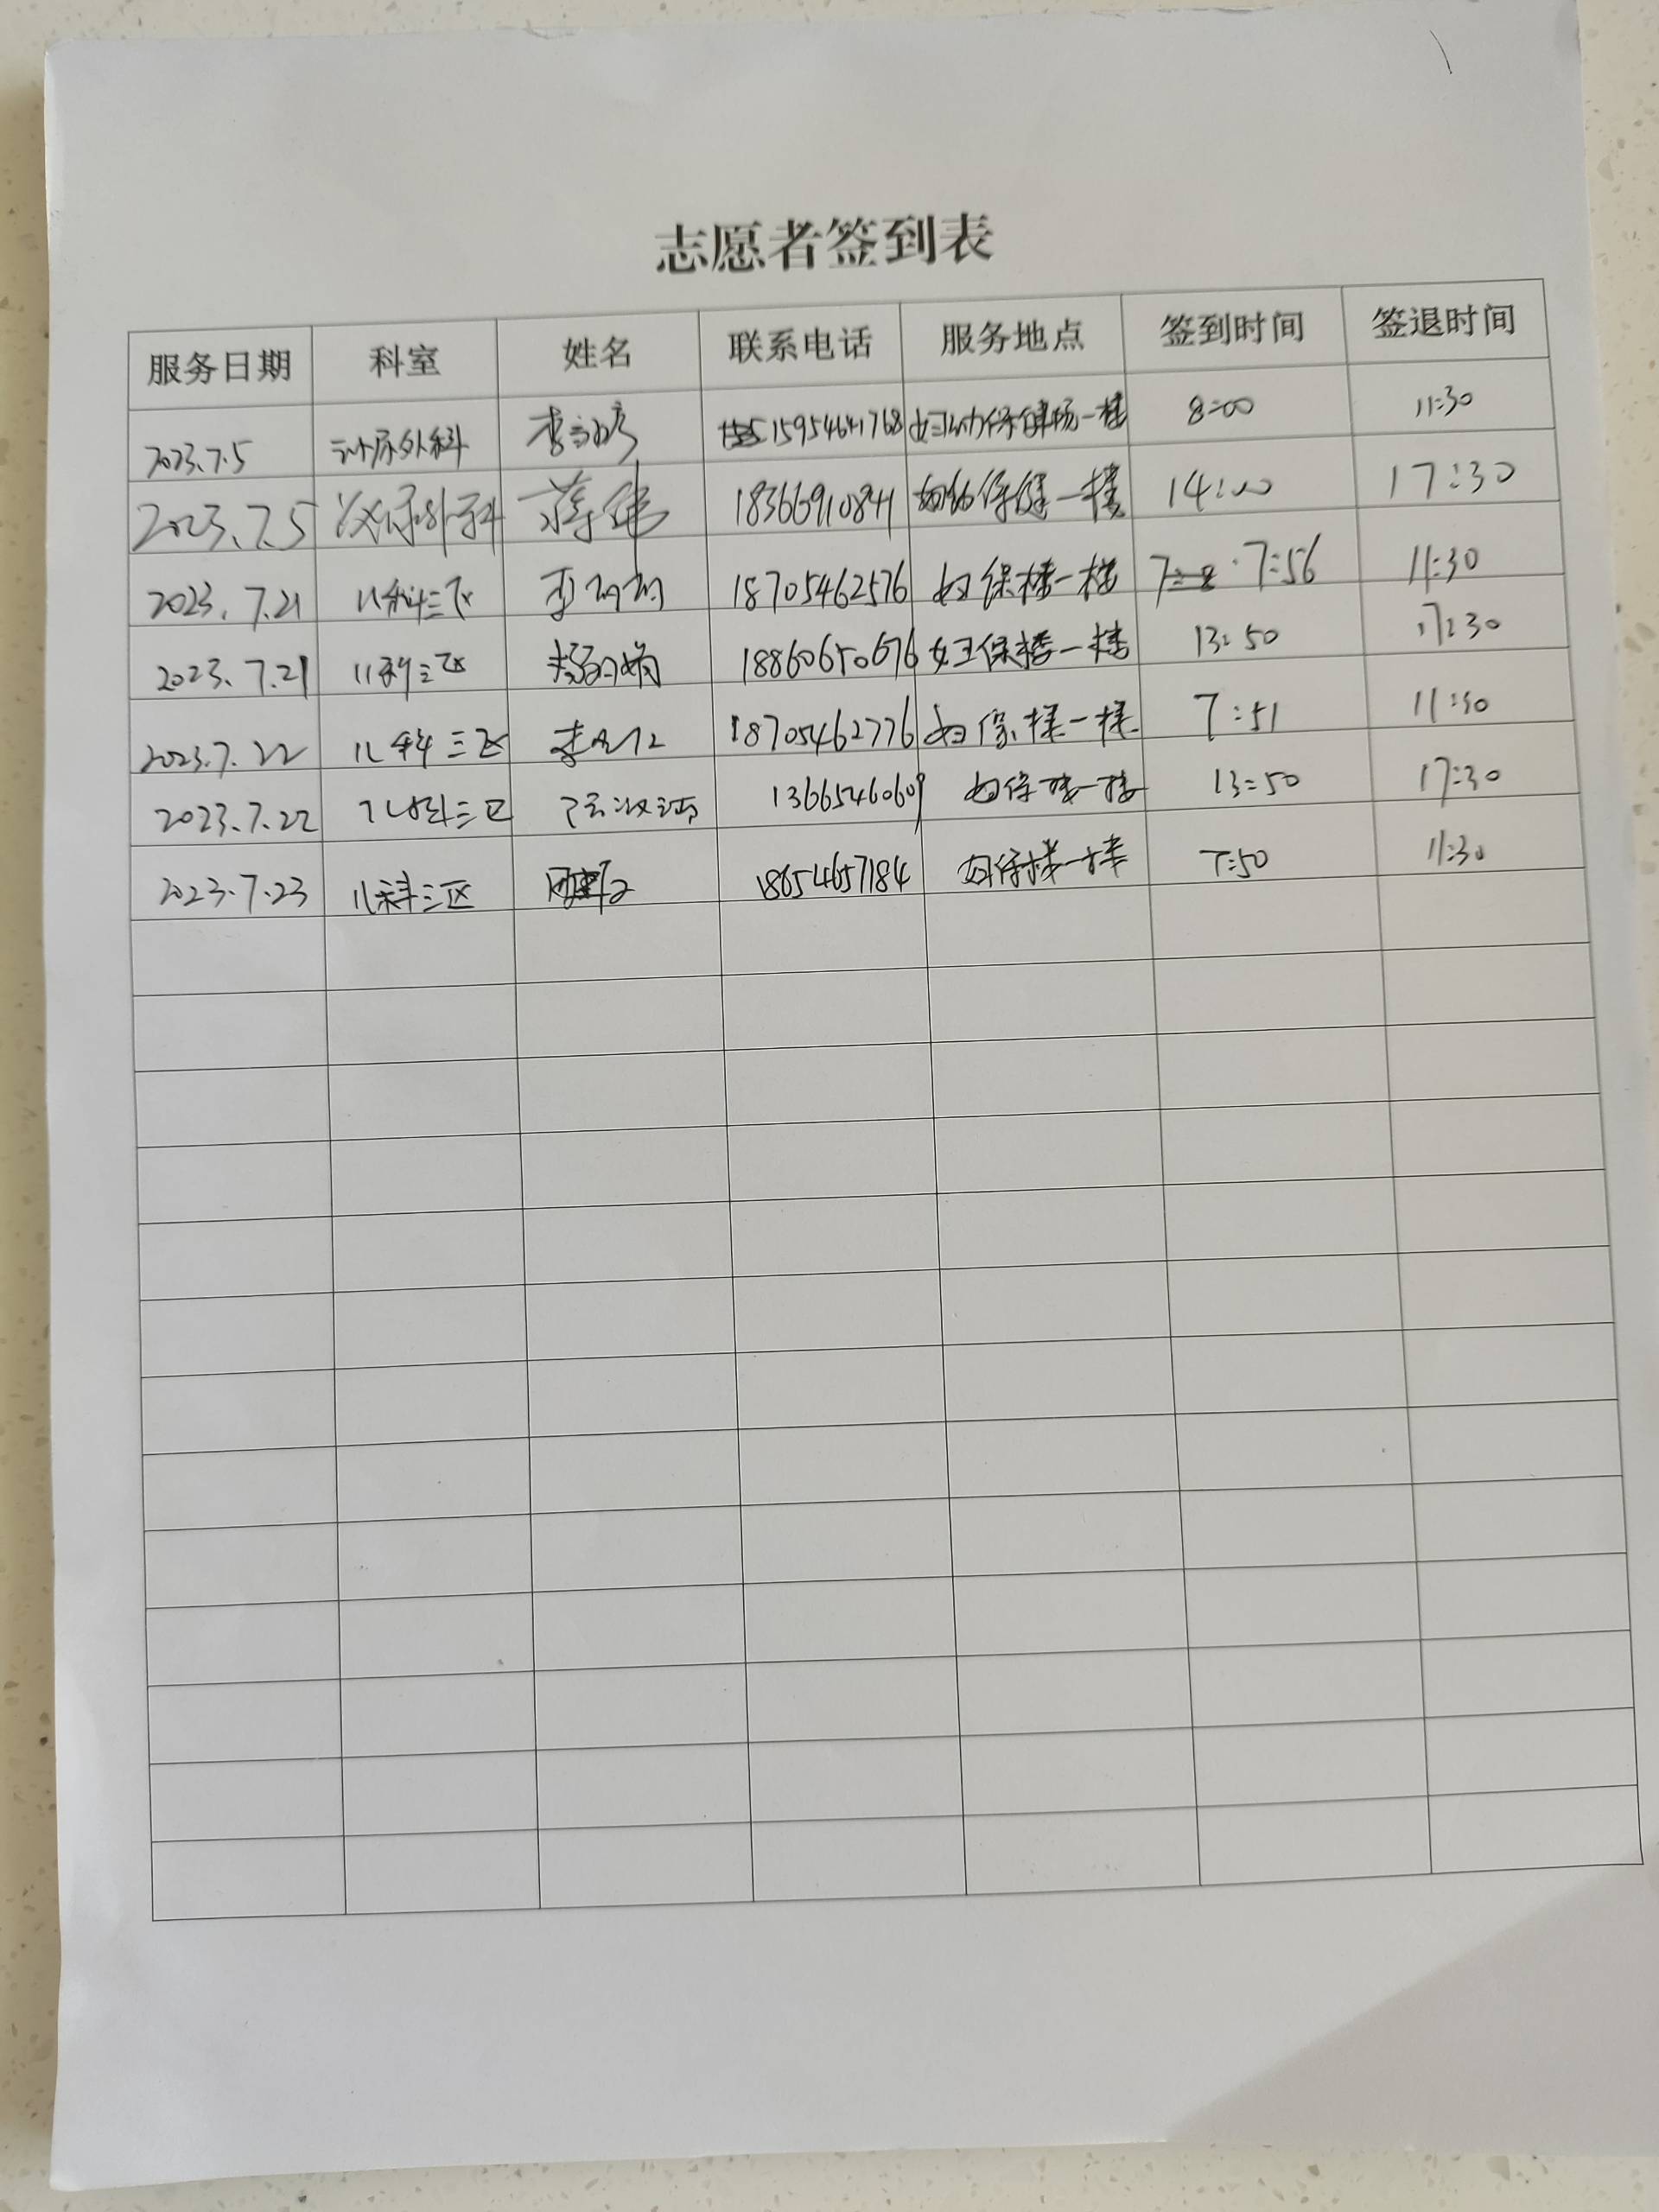 志愿者签到表
服务日期 科室 姓名 联系电话 服务地点 签到时间 签退时间
2023.7.5 泌尿外科 李 15954641768 妇幼保健院一楼 8:00 11:30
2023.7.5 泌尿外科 蒋伟 18366910841 妇幼保健一楼 14:00 17:30
2023.7.21 儿科三区 18705462576 妇保楼一楼 7:56 11:30
2023.7.21 儿科三区 18860650676 妇卫保楼一楼 13:50 17:30
2023.7.22 儿科三区 李 18705462776 妇保楼一楼 7:51 11:30
2023.7.22 儿科三区 13665460609 妇保楼一楼 13:50 17:30
2023.7.23 儿科三区 18654657184 妇保楼一楼 7:50 11:30